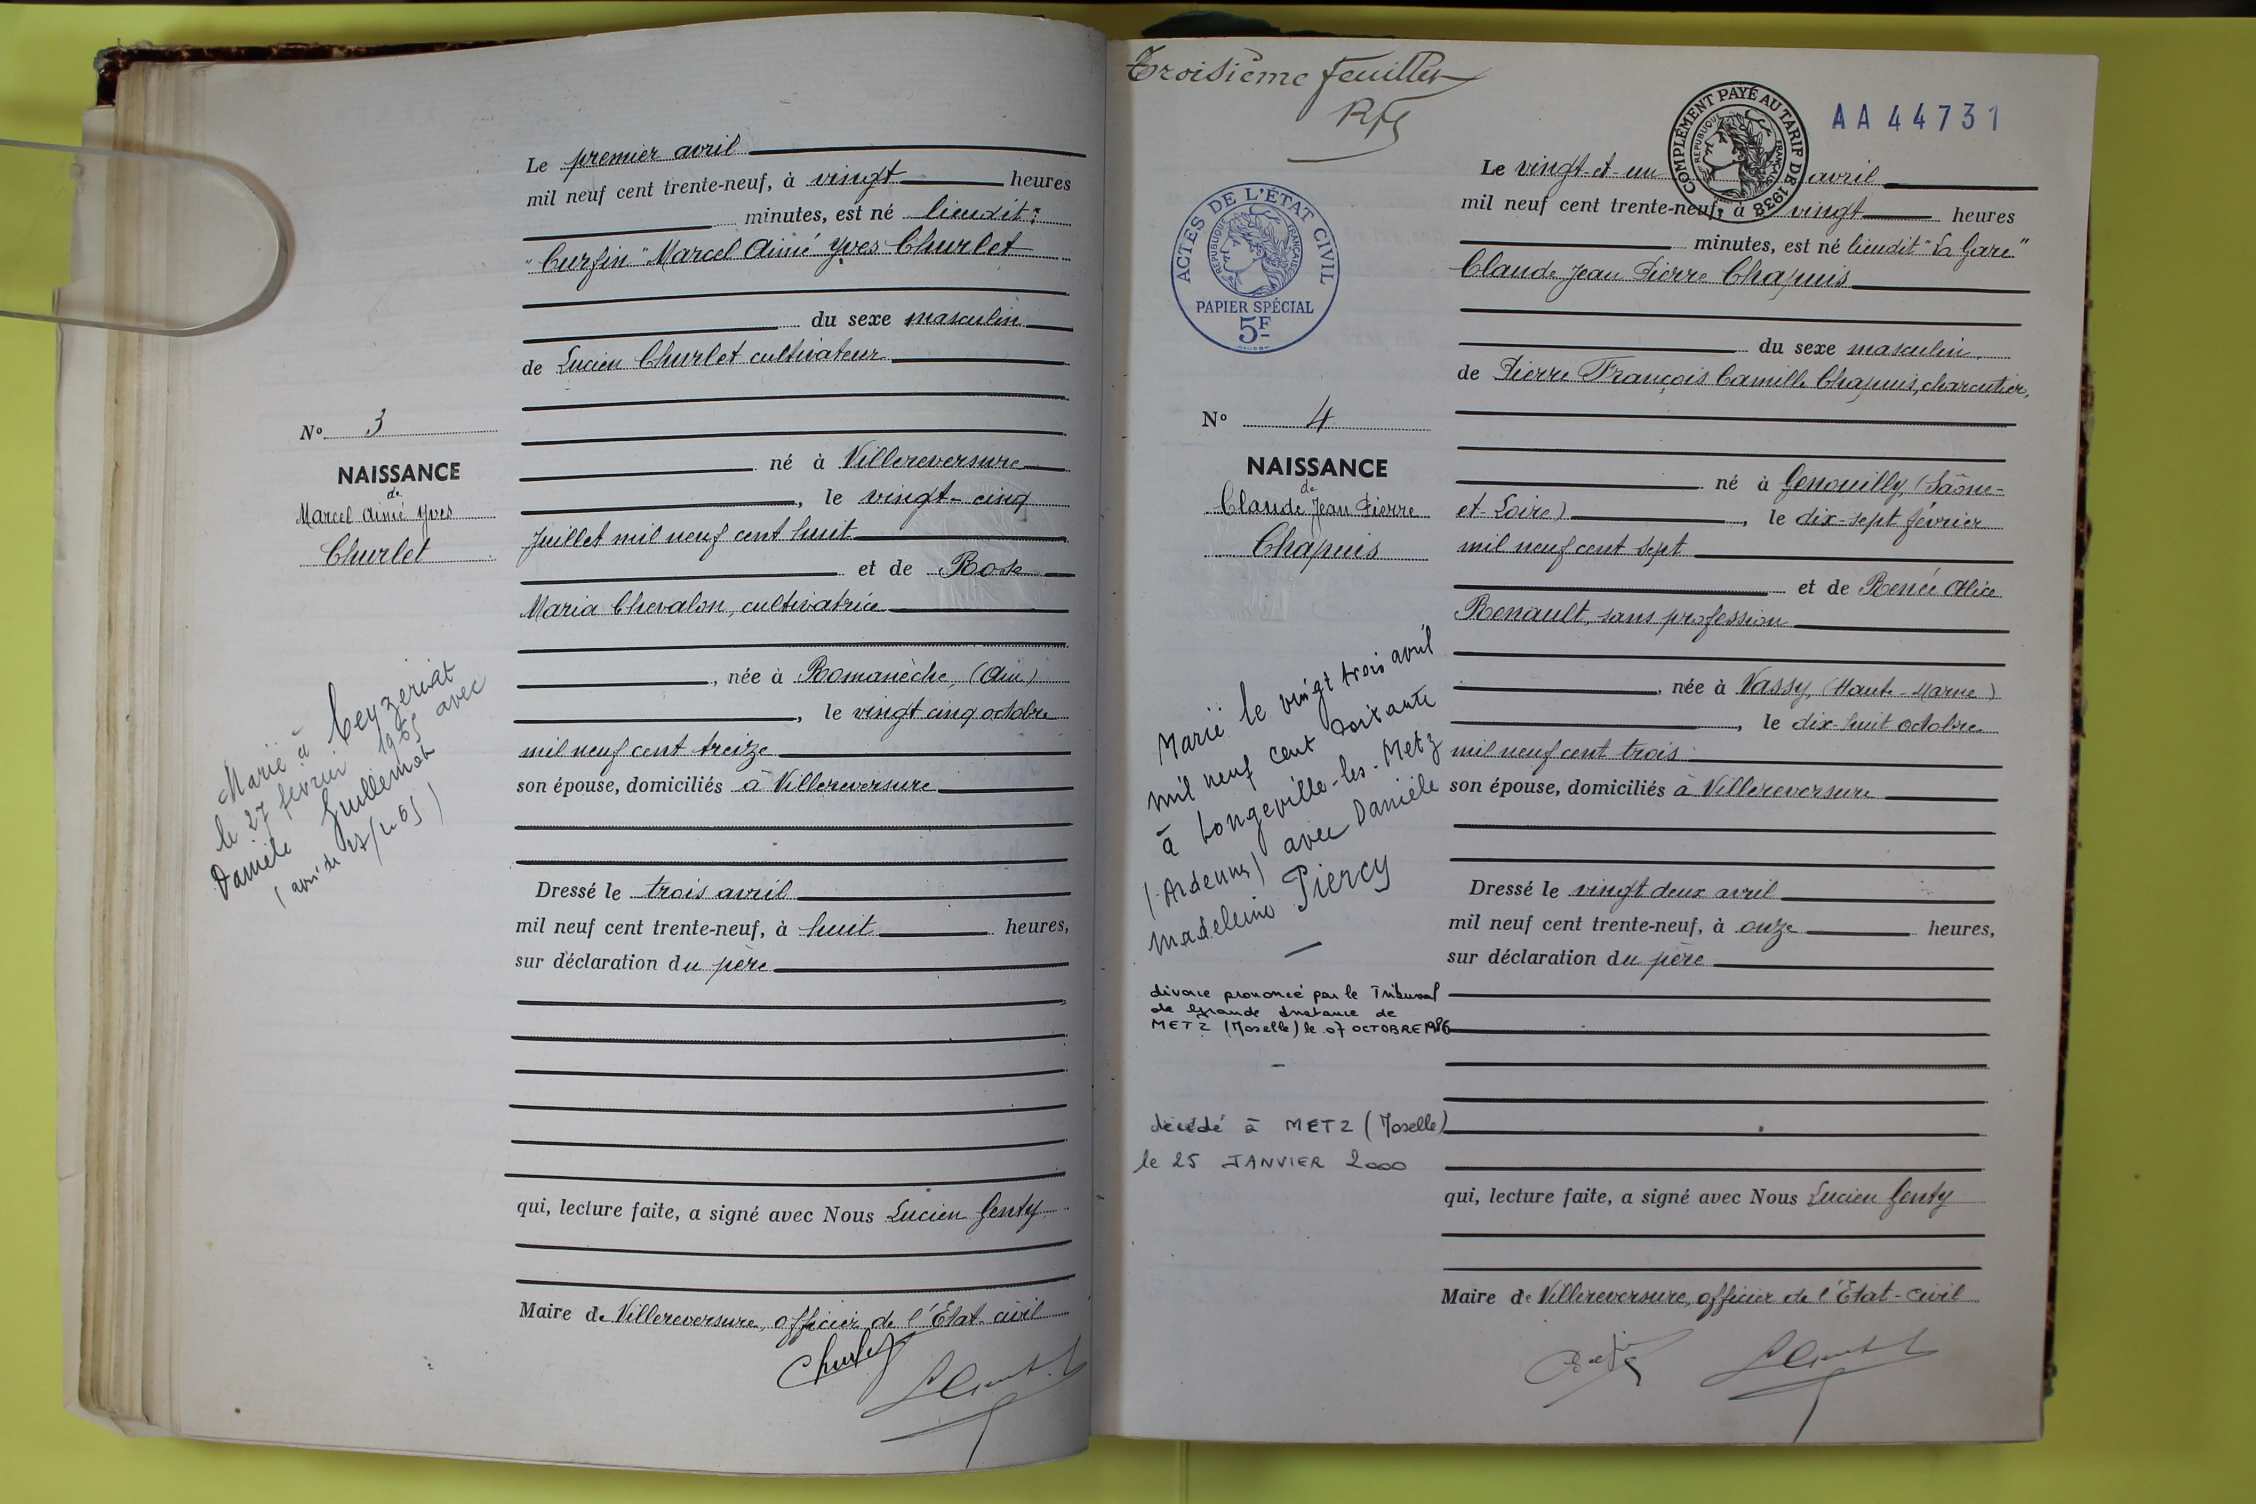 Le premier avril
mil neuf cent trente-neuf, à vingt heures
minutes, est né lieudit:
"Curfin" Marcel Aimé Yves Churlet
du sexe masculin
de Lucien Churlet cultivateur
né à Villereversure
, le vingt-cinq
Juillet mil neuf cent huit
et de Rose
Maria Chevalon, cultivatrice
, née à Romanèche, (Ain)
, le vingt cinq octobre
mil neuf cent treize
son épouse, domiciliés à Villereversure
Dressé le trois avril
mil neuf cent trente-neuf, à huit heures,
sur déclaration du père
qui, lecture faite, a signé avec Nous Lucien Genty
Maire de Villereversure, officier de l'Etat-civil
Churlet
N° 3
NAISSANCE
de
Marcel Aimé Yves
Churlet
Marié à Ceyzeriat
le 27 février 1965 avec
Danièle Guillemot
(avis du 27/2.65)
Troisième feuillet
AA44731
COMPLÉMENT PAYÉ AU TARIF DE 1938
REPUBLIQUE FRANÇAISE
ACTES DE L'ÉTAT CIVIL
REPUBLIQUE FRANÇAISE
PAPIER SPÉCIAL
5F
Le vingt-et-un avril
mil neuf cent trente-neuf, à vingt heures
minutes, est né lieudit "La Gare"
Claude Jean Pierre Chapuis
du sexe masculin
de Pierre François Camille Chapuis, charcutier,
né à Genouilly, (Saône-
et-Loire) , le dix-sept février
mil neuf cent sept
et de Renée Alice
Renault, sans profession
, née à Vassy, (Haute-Marne)
, le dix-huit octobre
mil neuf cent trois
son épouse, domiciliés à Villereversure
Dressé le vingt deux avril
mil neuf cent trente-neuf, à onze heures,
sur déclaration du père
qui, lecture faite, a signé avec Nous Lucien Genty
Maire de Villereversure, officier de l'Etat-civil
N° 4
NAISSANCE
de
Claude Jean Pierre
Chapuis
Marié le vingt trois avril
mil neuf cent soixante
à Longeville-les-Metz
(Ardennes) avec Danièle
Madeleine Piercy
divorce prononcé par le Tribunal
de Grande Instance de
METZ (Moselle) le 07 OCTOBRE 1986
décédé à METZ (Moselle)
le 25 JANVIER 2000